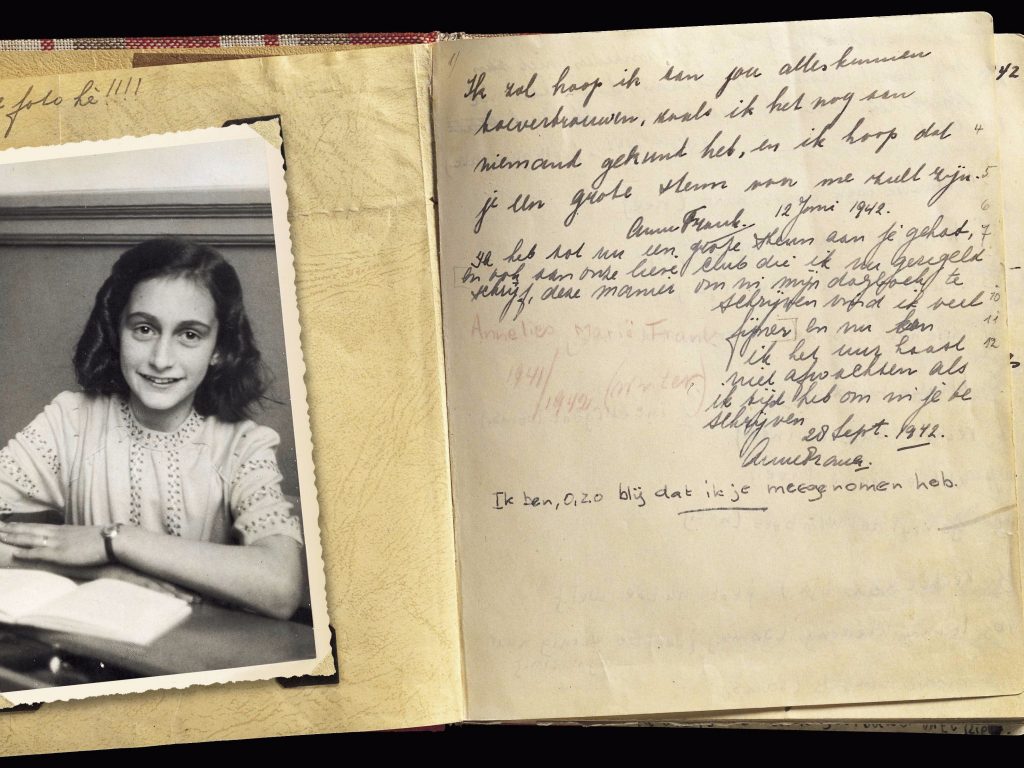 foto hè!!!!
Ik zal hoop ik aan jou alles kunnen
toevertrouwen, zoals ik het nog aan
niemand gekund heb, en ik hoop dat
je een grote steun van me zult zijn.
Anne Frank. 12 Juni 1942.
Ik heb tot nu een grote steun aan je gehad,
en ook aan onze lieve club die ik nu geregeld
schrijf, deze manier om in mijn dagboek te
schrijven vind ik veel
fijner en nu kan
ik het uur haast
niet afwachten als
ik tijd heb om in je te
schrijven
28 Sept. 1942.
Anne Frank.
Ik ben, o, zo blij dat ik je meegenomen heb.
Annelies Marie Frank
1941/1942. (winter)
4
5
6
7
10
11
12
42